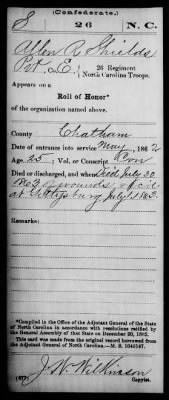 (Confederate.)
S 26 N.C.
Allen R Shields
Pvt, E, 26 Regiment
North Carolina Troops.
Appears on a
Roll of Honor*
of the organization named above.
County Chatham
Date of entrance into service May, 1862
Age 25; Vol. or Conscript Con
Died or discharged, and when Died July 30
1863 wounds
at Gettysburg July 1 1863.
Remarks:
*Compiled in the Office of the Adjutant General of the State
of North Carolina in accordance with resolutions ratified by
the General Assembly of that State
This card was made from the original record borrowed from
the Adjutant General of North Carolina—M. S.
J. W. Wilkinson
Copyist.